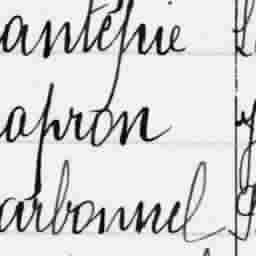 antépie
apron
arbonnel